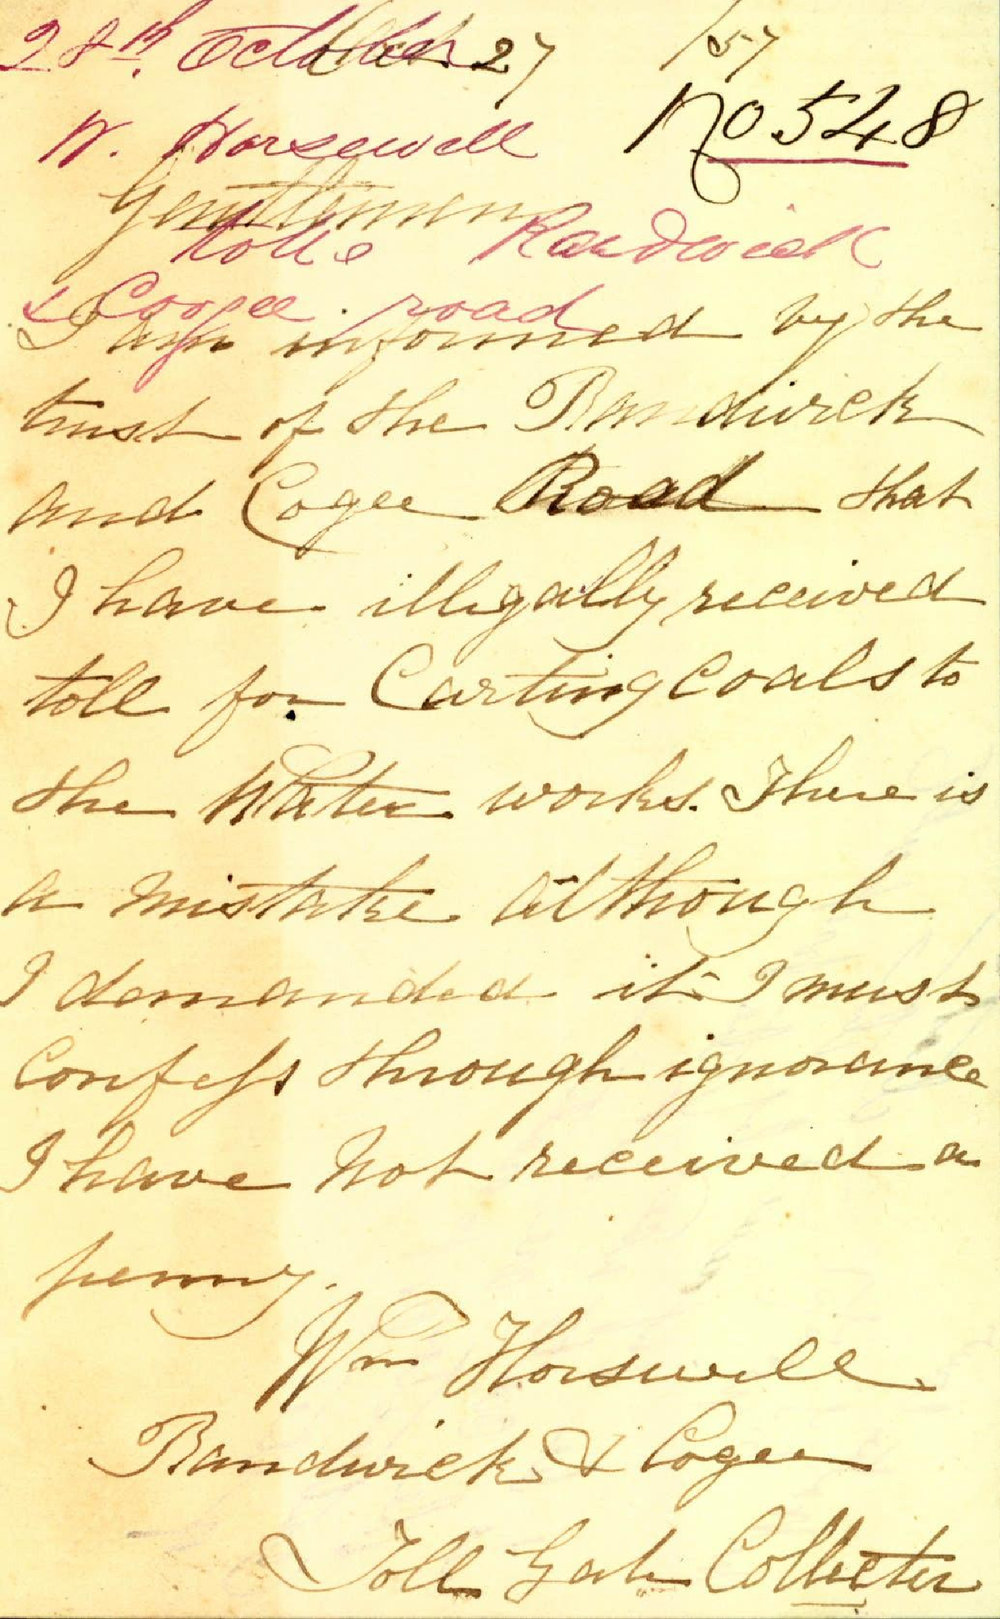 28th October Oct 27 /57
W. Horsewell No 548
Gentlemen
Tolls Randwick
& Coogee road
I am informed by the
trust of the Randwick
and Cogee Road that
I have illegally received
toll for Carting Coals to
the Water works. There is
a mistake although
I demanded it I must
Confess through ignorance
I have Not received a
penny.
Wm Horswell
Randwick & Cogee
Toll Gate Collecter